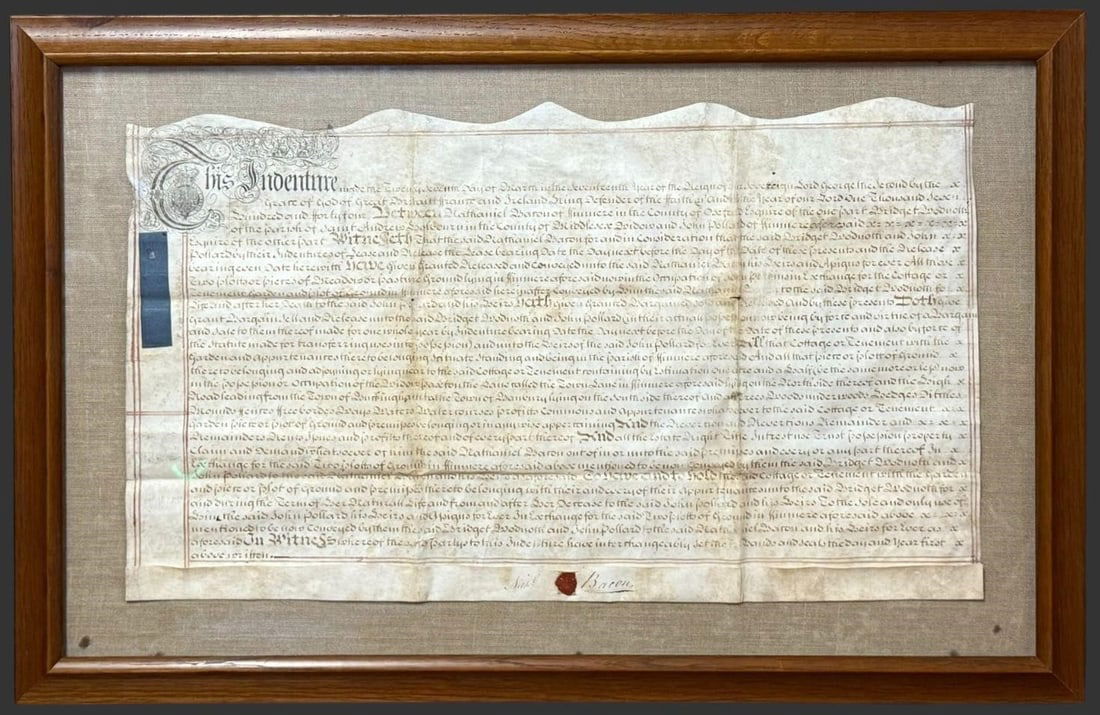 This Indenture made the Twenty Seventh Day of March in the Seventeenth Year of the Reign of our Sovereign Lord George the Second by the
Grace of God of Great Brittain France and Ireland King Defender of the Faith &c and in the Year of our Lord One Thousand Seven
Hundred and forty four Between Nathaniel Bacon of in the County of Esquire of the one part Bridget Woodnoth
of the parish of Saint Andrew Holbourn in the County of Middlesex Widow and John Pollard of aforesaid
Esquire of the other part Witnesseth That the said Nathaniel Bacon for and in Consideration that the said Bridget Woodnoth and John
Pollard by their Indentures of Lease and Release the Lease bearing Date the Day next before the Day of the Date of these presents and the Release
bearing even Date herewith HAVE Given Granted Released and Conveyed unto the said Nathaniel Bacon his Heirs and Assigns for ever All those
Two plotts or pieces of Meadow or pasture Ground lying in aforesaid now in the Occupation of in Exchange for the Cottage or
Tenement Garden and plot of Ground in aforesaid hereafter Conveyed by him the said Nathaniel to the said Bridget Woodnoth for
Life and after her Death to the said John Pollard and his Heirs Hath given Granted Bargained Sold and by these presents Doth give
Grant Bargain Sell and Release unto the said Bridget Woodnoth and John Pollard (in their actual possession now being by force and virtue of a Bargain
and Sale to them thereof made for one whole year by Indenture bearing Date the Day next before the Day of the Date of these presents and also by force of
the Statute made for transferring uses into possession) and unto the Heirs of the said John Pollard for ever All that Cottage or Tenement with the
Garden and appurtenances thereto belonging Scituate Standing and being in the parish of aforesaid And all that piece or plott of Ground
thereto belonging and adjoyning or lying to the said Cottage or Tenement containing by Estimation One Acre and a half be the same more or less now
in the possession or Occupation of the Widow in the Lane called the Town Lane in aforesaid lying on the North side thereof and the High
Road leading from the Town of Buckingham to the Town of Banbury lying on the South side thereof Woods underwoods Hedges Ditches
Mounds Fences Freeboards Ways Waters Watercourses profits Commons and Appurtenances whatsoever to the said Cottage or Tenement
Garden piece or plot of Ground and premisses belonging or in any wise appertaining And the Reversion and Reversions Remainder and
Remainders Rents Issues and profits thereof and of every part thereof And all the Estate Right Title Interest use Trust possession property
Claim and Demand whatsoever of him the said Nathaniel Bacon out of in or unto the said premisses and every or any part thereof In
Exchange for the said Two plotts of Ground in aforesaid above mentioned to be now Conveyed by them the said Bridget Woodnoth and
John Pollard to the said Nathaniel Bacon and his Heirs as aforesaid To HAVE and To Hold the said Cottage or Tenement with the Garden
and piece or plot of Ground and premisses thereto belonging with their and every of their Appurtenances unto the said Bridget Woodnoth for
and during the Term of her Natural Life and from and after her Decease to the said John Pollard and his Heirs To the sole and only use of
him the said John Pollard his Heirs and Assigns for Ever In Exchange for the said Two plotts of Ground in aforesaid above
mentioned to be now Conveyed by them the said Bridget Woodnoth and John Pollard to the said Nathaniel Bacon and his Heirs for Ever as
aforesaid In Witness whereof the said partys to this Indenture have interchangeably set their Hands and Seals the day and Year first
above written
Nath^l Bacon